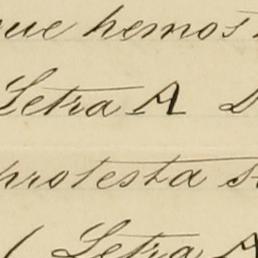 que hemos
Letra A
protesta
( Letra A